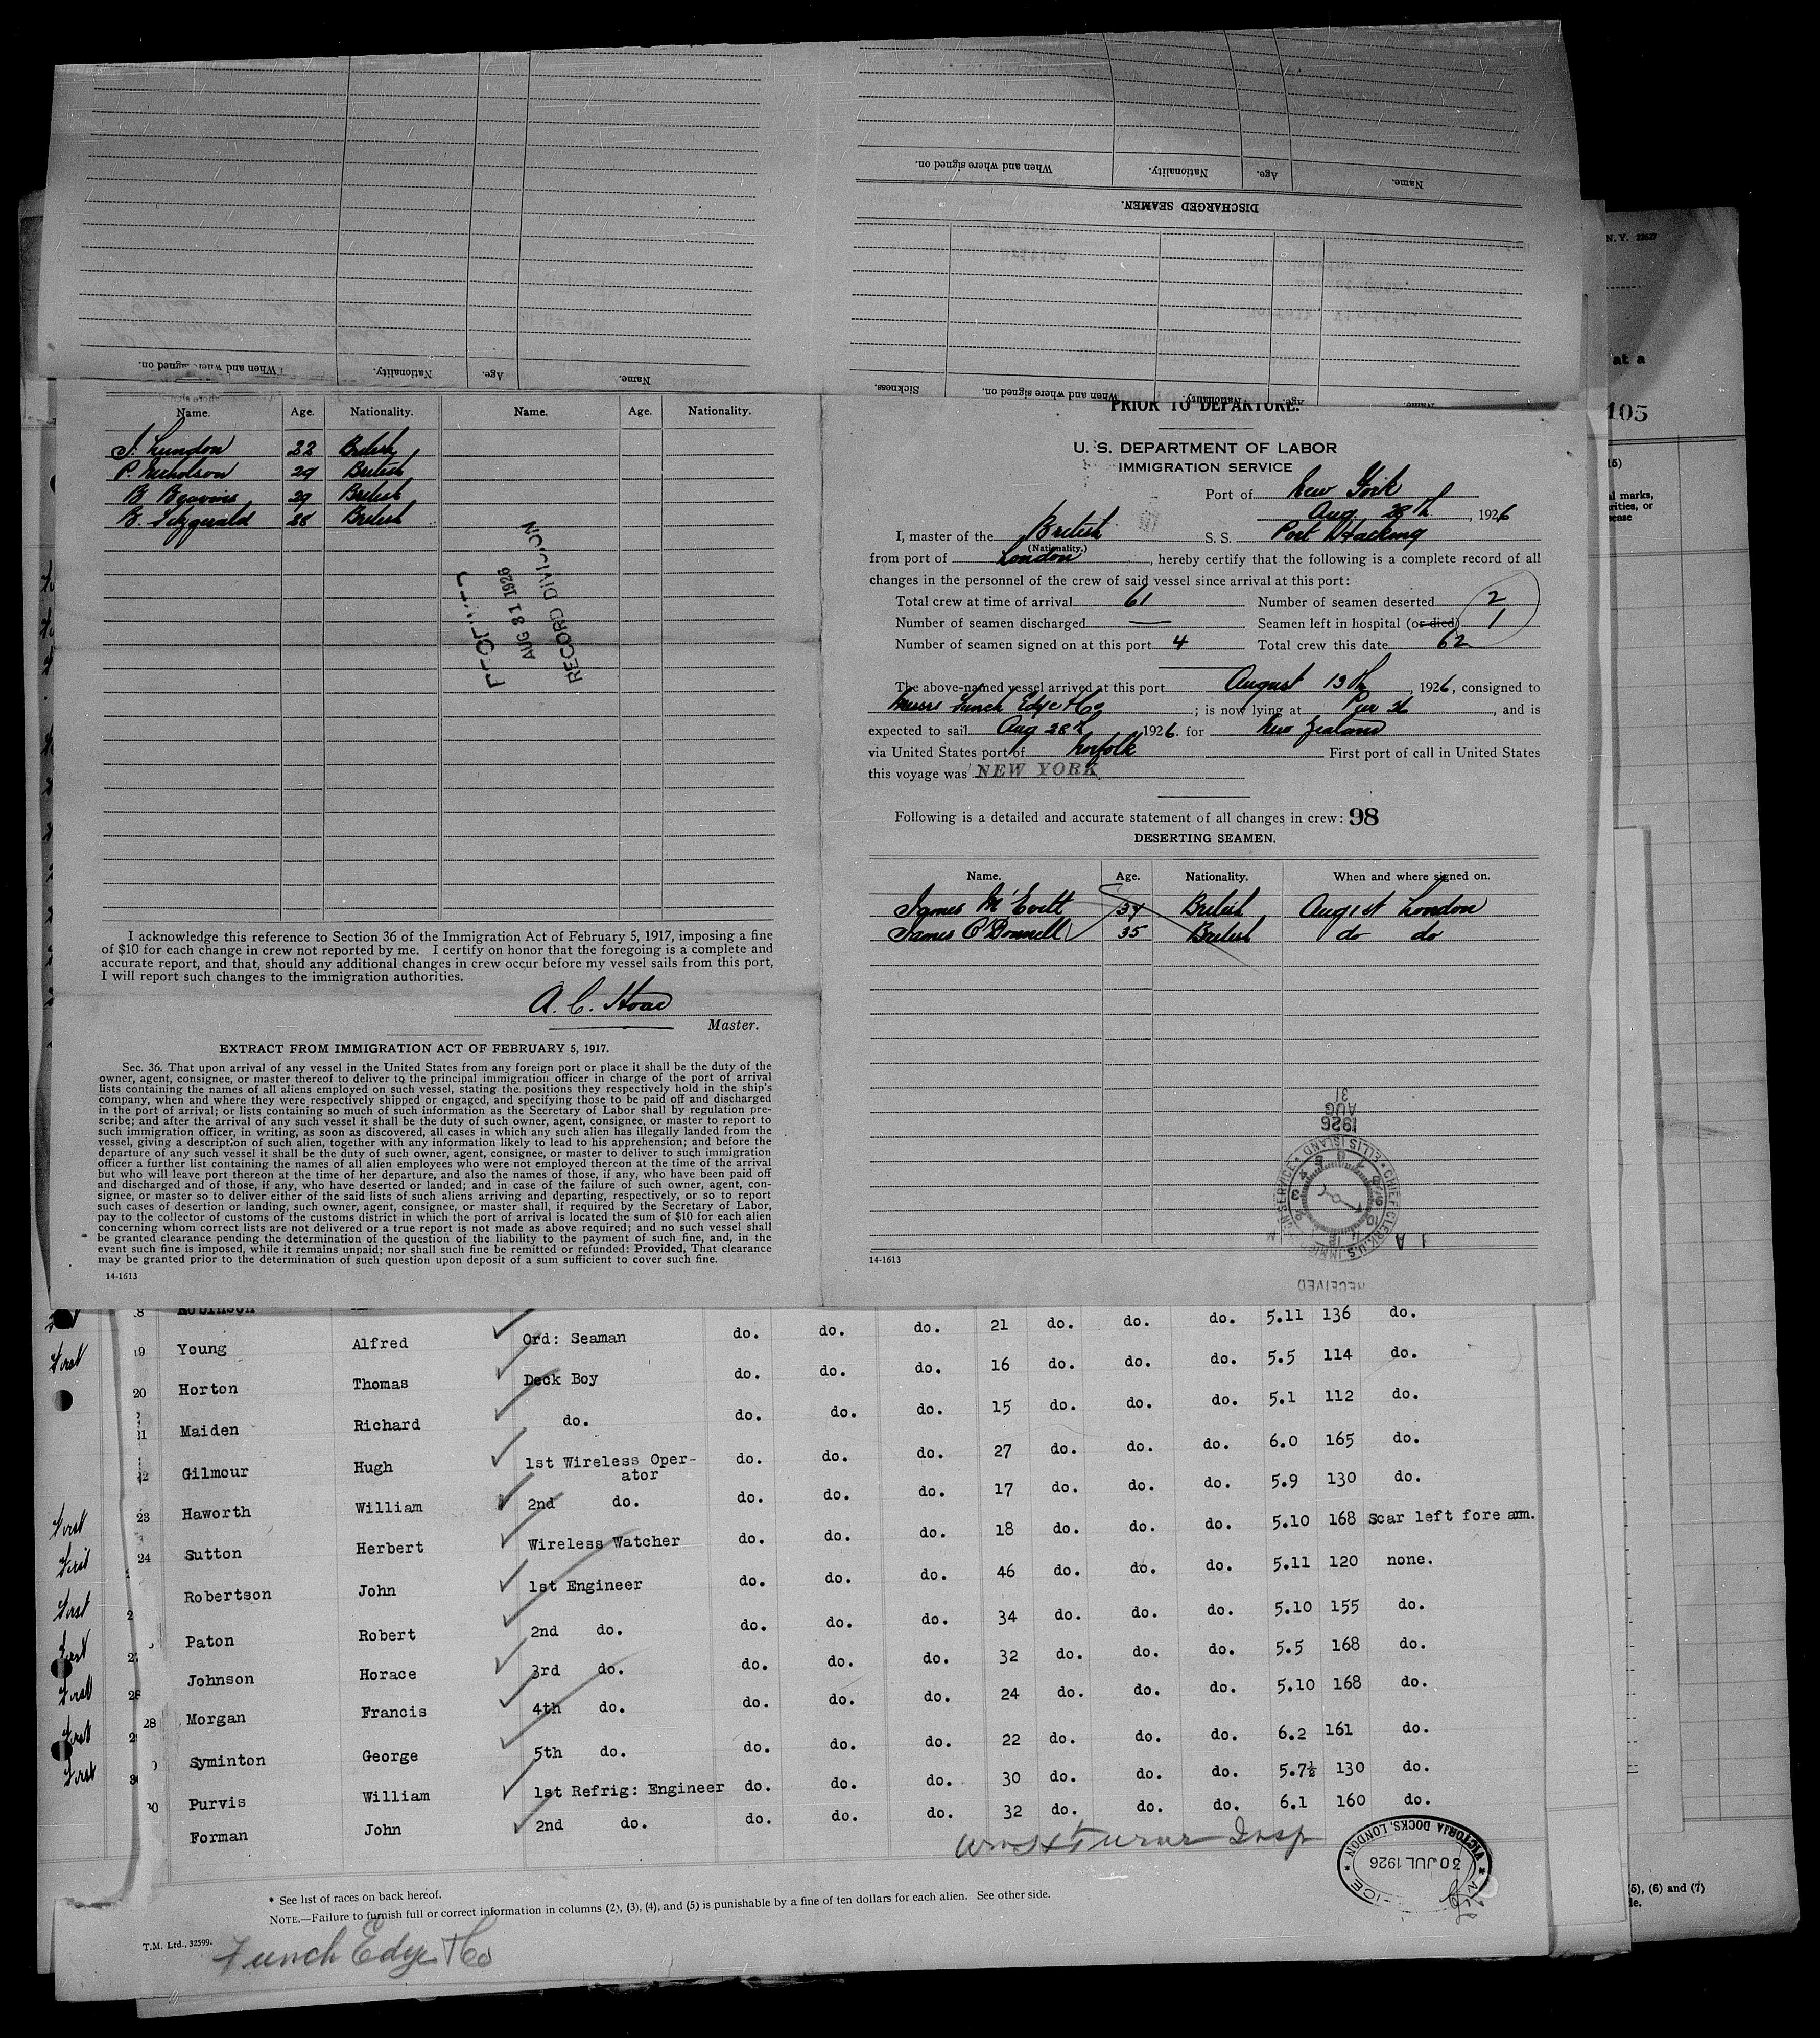 When and where signed on.
Nationality.
Age.
Name.
When and where signed on.
Nationality.
Age.
Name.
DISCHARGED SEAMEN.
Sickness.
When and where signed on.
Nationality.
Age.
Name.
N. Y.
at a
105
Name. Age. Nationality. Name. Age. Nationality.
22 British
P. Nicholson 29 British
29 British
B. Fitzgerald 28 British
AUG 31 1926
RECORD DIVISION
I acknowledge this reference to Section 36 of the Immigration Act of February 5, 1917, imposing a fine
of $10 for each change in crew not reported by me. I certify on honor that the foregoing is a complete and
accurate report, and that, should any additional changes in crew occur before my vessel sails from this port,
I will report such changes to the immigration authorities.
A. C. Hoad
Master.
EXTRACT FROM IMMIGRATION ACT OF FEBRUARY 5, 1917.
Sec. 36. That upon arrival of any vessel in the United States from any foreign port or place it shall be the duty of the
owner, agent, consignee, or master thereof to deliver to the principal immigration officer in charge of the port of arrival
lists containing the names of all aliens employed on such vessel, stating the positions they respectively hold in the ship's
company, when and where they were respectively shipped or engaged, and specifying those to be paid off and discharged
in the port of arrival; or lists containing so much of such information as the Secretary of Labor shall by regulation pre-
scribe; and after the arrival of any such vessel it shall be the duty of such owner, agent, consignee, or master to report to
such immigration officer, in writing, as soon as discovered, all cases in which any such alien has illegally landed from the
vessel, giving a description of such alien, together with any information likely to lead to his apprehension; and before the
departure of any such vessel it shall be the duty of such owner, agent, consignee, or master to deliver to such immigration
officer a further list containing the names of all alien employees who were not employed thereon at the time of the arrival
but who will leave port thereon at the time of her departure, and also the names of those, if any, who have been paid off
and discharged and of those, if any, who have deserted or landed; and in case of the failure of such owner, agent, con-
signee, or master so to deliver either of the said lists of such aliens arriving and departing, respectively, or so to report
such cases of desertion or landing, such owner, agent, consignee, or master shall, if required by the Secretary of Labor,
pay to the collector of customs of the customs district in which the port of arrival is located the sum of $10 for each alien
concerning whom correct lists are not delivered or a true report is not made as above required; and no such vessel shall
be granted clearance pending the determination of the question of the liability to the payment of such fine, and, in the
event such fine is imposed, while it remains unpaid; nor shall such fine be remitted or refunded: Provided, That clearance
may be granted prior to the determination of such question upon deposit of a sum sufficient to cover such fine.
14-1613
PRIOR TO DEPARTURE.
U. S. DEPARTMENT OF LABOR
IMMIGRATION SERVICE
Port of New York
Aug 28th, 1926
I, master of the British S. S. Port Hacking
(Nationality.)
from port of London, hereby certify that the following is a complete record of all
changes in the personnel of the crew of said vessel since arrival at this port:
Total crew at time of arrival 61 Number of seamen deserted 2
Number of seamen discharged — Seamen left in hospital (or died) 1
Number of seamen signed on at this port 4 Total crew this date 62
The above-named vessel arrived at this port August 13th, 1926, consigned to
Messrs Funch Edye & Co; is now lying at Pier, and is
expected to sail Aug 28th 1926. for New Zealand
via United States port of Norfolk First port of call in United States
this voyage was NEW YORK
Following is a detailed and accurate statement of all changes in crew: 98
DESERTING SEAMEN.
Name. Age. Nationality. When and where signed on.
James British Aug 1st London
James O'Donnell 35 British do do
1926
AUG
31
CHIEF CLERK, U.S. IMMIGRATION SERVICE ELLIS ISLAND
RECEIVED
14-1613
Robinson 21 do. do. do. 5.11 136 do.
19 Young Alfred Ord: Seaman do. do. do. 16 do. do. do. 5.5 114 do.
20 Horton Thomas Deck Boy do. do. do. 15 do. do. do. 5.1 112 do.
21 Maiden Richard do. do. do. do. 27 do. do. do. 6.0 165 do.
22 Gilmour Hugh 1st Wireless Oper-
ator do. do. do. 17 do. do. do. 5.9 130 do.
23 Haworth William 2nd do. do. do. do. 18 do. do. do. 5.10 168 Scar left fore arm.
24 Sutton Herbert Wireless Watcher do. do. do. 46 do. do. do. 5.11 120 none.
Robertson John 1st Engineer do. do. do. 34 do. do. do. 5.10 155 do.
Paton Robert 2nd do. do. do. do. 32 do. do. do. 5.5 168 do.
Johnson Horace 3rd do. do. do. do. 24 do. do. do. 5.10 168 do.
28 Morgan Francis 4th do. do. do. do. 22 do. do. do. 6.2 161 do.
Syminton George 5th do. do. do. do. 30 do. do. do. 5.7½ 130 do.
Purvis William 1st Refrig: Engineer do. do. do. 32 do. do. do. 6.1 160 do.
Forman John 2nd do. do. do. do.
VICTORIA DOCKS, LONDON
30 JUL 1926
* See list of races on back hereof.
NOTE.—Failure to furnish full or correct information in columns (2), (3), (4), and (5) is punishable by a fine of ten dollars for each alien. See other side.
T.M. Ltd., 32599.
Funch Edye & Co
(5), (6) and (7)